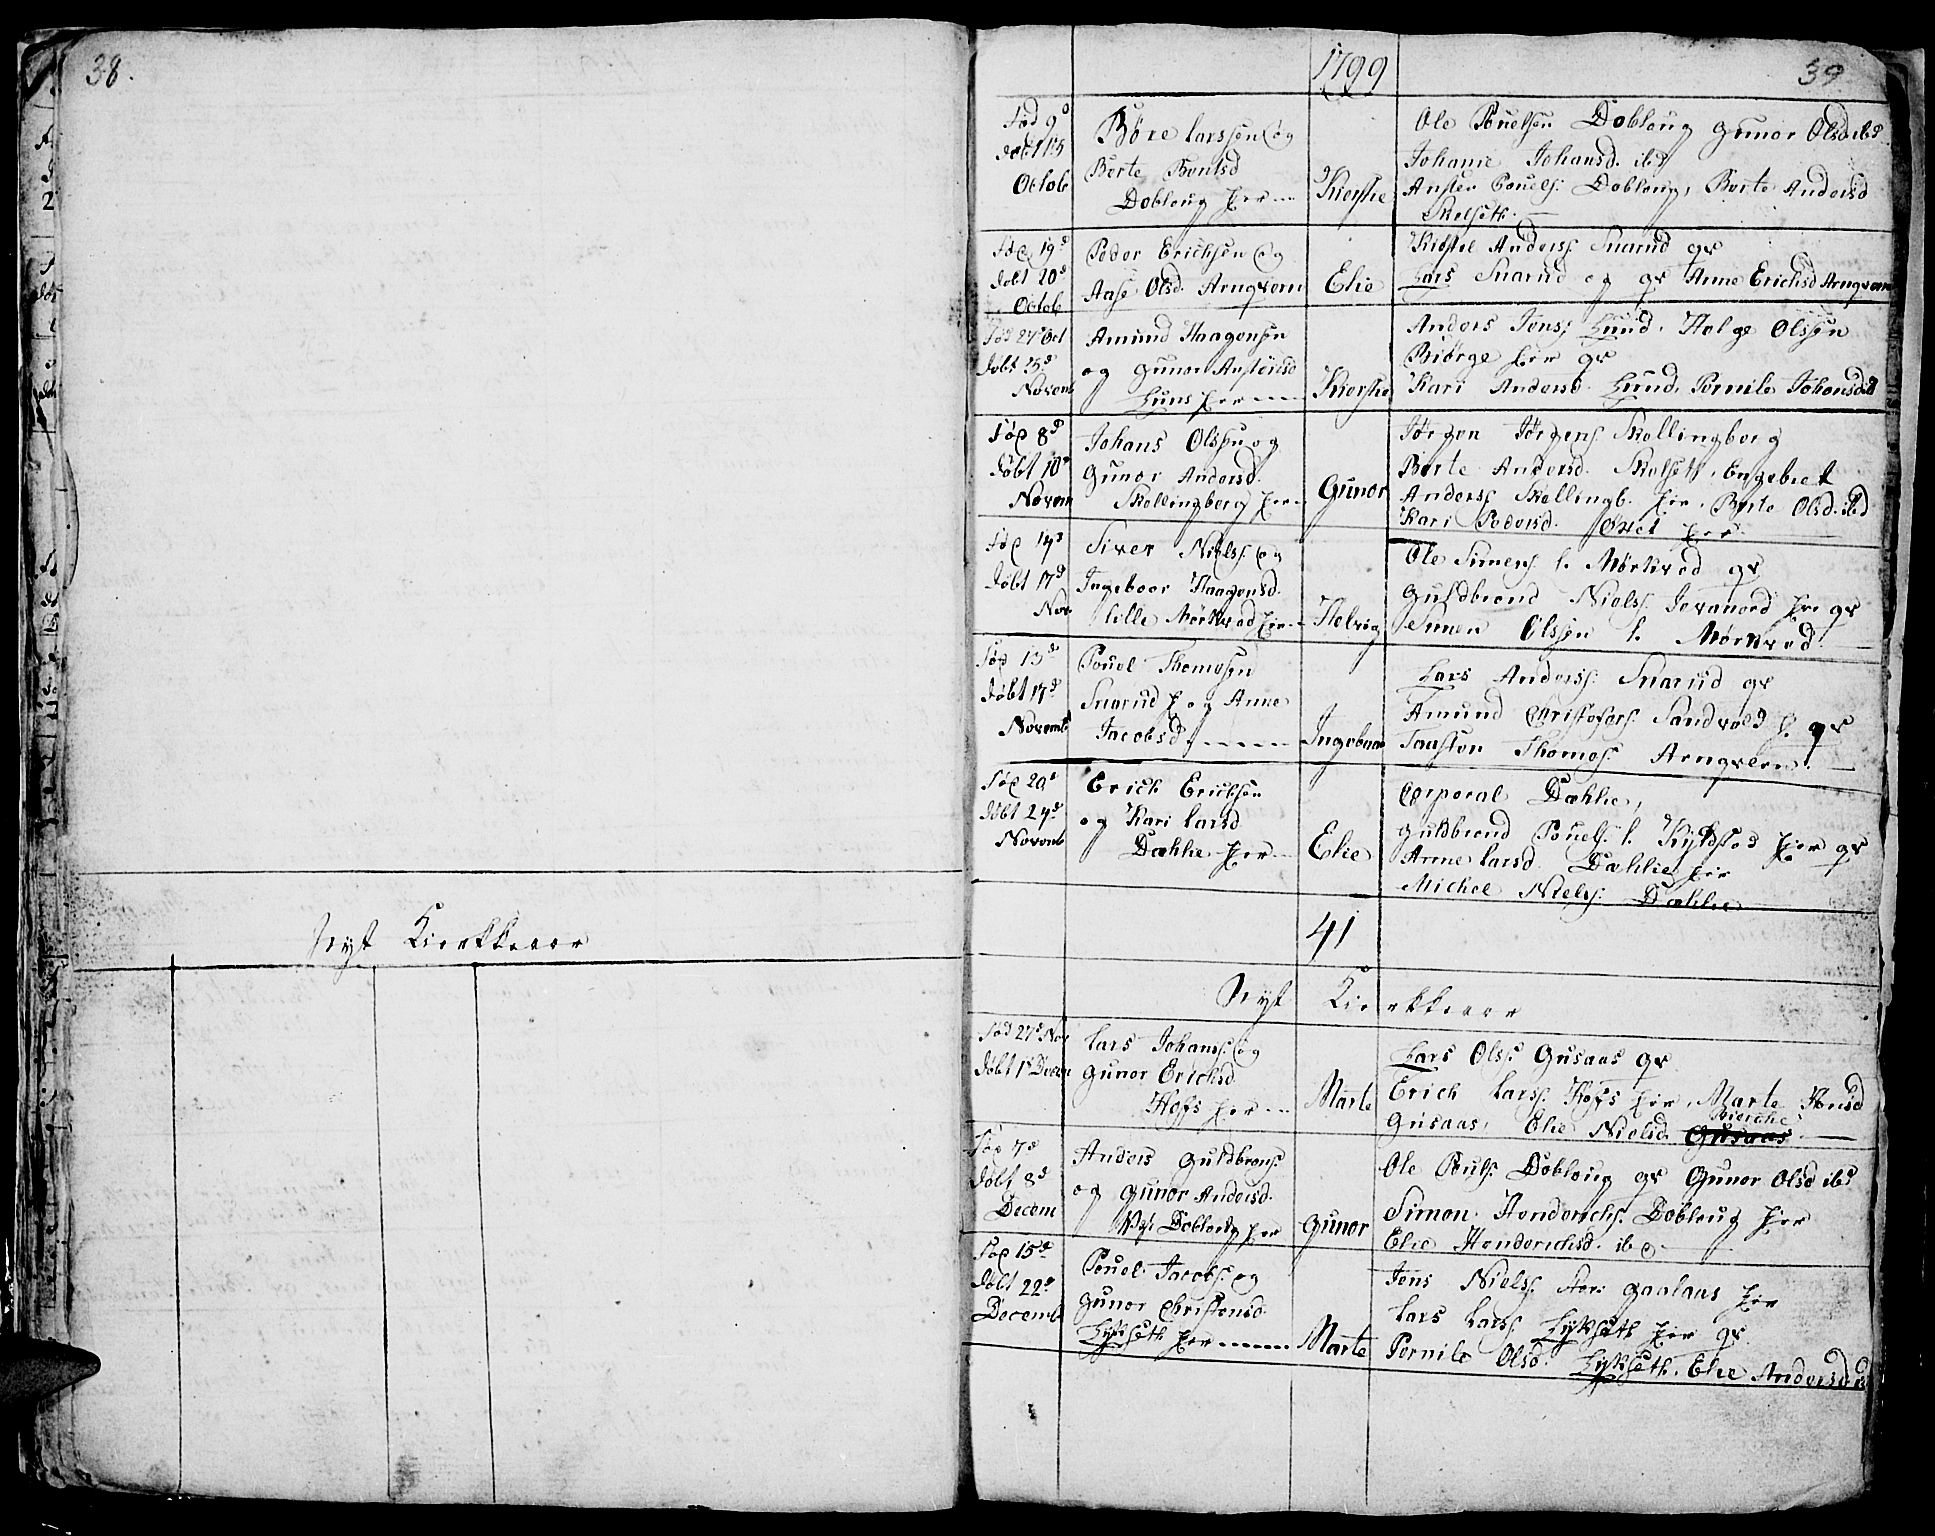 38.
Nyt Kirkkeaar
1799
39
Fød 9d
døbt 15
Octob
Børe Larssen og
Berte Bentsd
Dobloug her
Kierstie
Ole Pouelsen Dobloug Gunor Olsd ibd
Johane Johansd. ibd
Ansten Pouels: Dobloug, Berte Andersd
Skelseth.
Fød 19d
døbt 20d
Octob
Peder Erichsen og
Aase Olsd. Arnqvern
Elie
Kiøstel Anders: Snarud gr
Lars Snarud og gr Anne Erichsd Arnqvern
Fød 27 Oct
døbt 25d
Novemb
Amund Haagensen
og Gunor Anstensd
Lund her
Kierstie
Anders Jens: Lund. Helge Olssen
Biørge her gr
Kari Andersd. Lund, Pernile Johansd ibd
Fød 8d
døbt 10d
Novem
Johans Olssen og
Gunor Andersd.
Skellingberg her
Gunor
Jørgen Jørgens: Skellingberg
Berte Andersd. Skelseth. Engebret
Anders: Skellingb. her, Berte Olsd. ibd
Kari Pedersd. her
Fød 14d
døbt 17d
Nov
Siver Niels: og
Ingeboer Haagensd.
lille Mørkved her
Helvig
Ole Simens: l. Mørkved gr
Guldbrend Niels: her gr
Simen Olssen l. Mørkved.
Fød 13d
døbt 17d
Novemb
Pouel Thomesen
Snarud h og Anne
Jacobsd.
Ingeboer
Lars Anders: Snarud gr
Amund Christofers: Sandvold h. gr
Fausten Thomes: Arnqvern.
Fød 20d
døbt 24d
Novemb
Erich Erichsen
og Kari Larsd
Dæhlie her
Elie
Corporal Dæhlie,
Guldbrend Pouels: l. Kyldstad her gr
Anne Larsd. Dæhlie her
Michel Niels: Dæhlie
41
Nyt Kirkkeaar
Fød 27d Nov
døbt 1d Decem
Lars Johans: og
Gunor Erichsd.
Hofs her
Marte
Lars Ols: Gusaas gr
Erich Lars: Hofs her, Marte
Bierche
Gusaas, Elie Nielsd. Gusaas
Fød 7d
døbt 8d
Decem
Anders Guldbrens:
og Gunor Andersd.
Dobloug her
Gunor
Ole Pouels: Dobloug gr Gunor Olsd ibd
Simen Henderichs: Dobloug her
Elie Henderichsd. ibd
Fød 15d
døbt 22d
Decemb
Pouel Jacobs: og
Gunor Christensd.
Lykseth her
Marte
Jens Niels: Stor: Gaalaas her
Lars Lars: Lykseth her gr
Pernile Olsd. Lykseth, Elie Andersd ibd